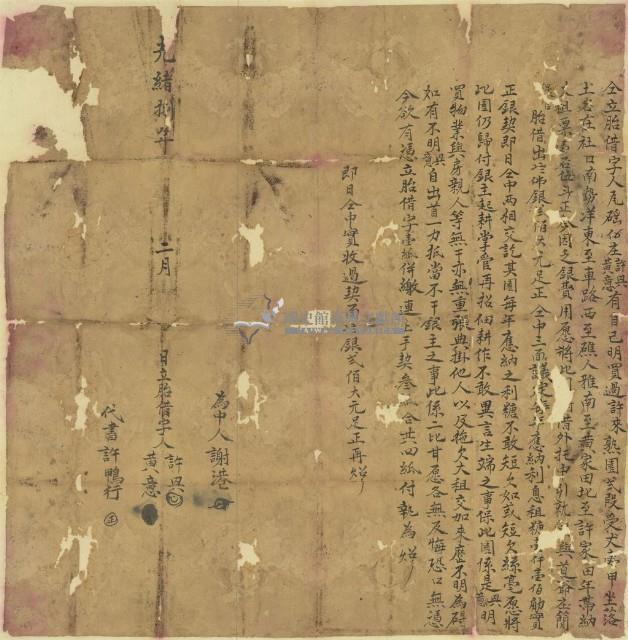 仝立胎借字人尾磘仔庄許興黃意有自己明買過許來熟園貳段受大
甲坐落
土名在社口南勢洋東至車路西至礁人雅南至黃家田北至許家田年帶納
大租粟
斗正今因乏銀費用愿將此園
借外托中引就
與
胎借出
佛銀貳佰大元足正仝中三面議定每年應納利息租糖
仟壹佰觔實
正銀契即日仝中兩相交訖其園每年應納之利糖不敢短欠如或短欠絲毫愿將
此園仍歸付銀主起耕掌管再招佃耕作不敢異言生端之事保此園係是興意明
買物業與房親人等無干亦無重張典掛他人以及拖欠大租交加來歷不明為碍
如有不明興意自出首一力抵當不干銀主之事此係二比甘愿各無反悔恐口無憑
今欲有憑立胎借字壹紙併繳連上手契叁紙合共四紙付執為炤
即日仝中實收過契
銀貳佰大元足正再炤
為中人謝港
光緒捌年 二月 日立胎借字人許興黃意
代書許鴨行